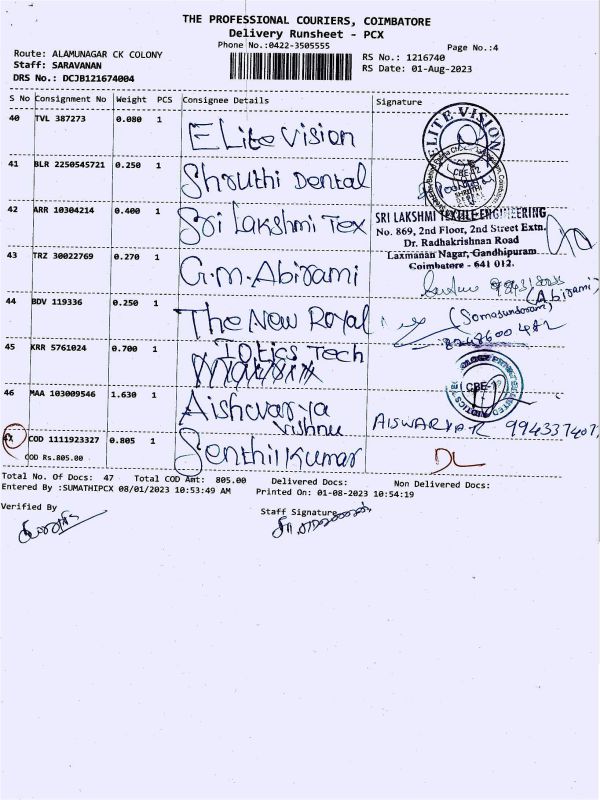 THE PROFESSIONAL COURIERS, COIMBATORE
Delivery Runsheet - PCX
Phone No.:0422-3505555
Page No.:4
Route: ALAMUNAGAR CK COLONY
Staff: SARAVANAN
DRS No.: DCJB121674004
RS No.: 1216740
RS Date: 01-Aug-2023
S No Consignment No Weight PCS Consignee Details Signature
40 TVL 387273 0.080 1 Elite Vision
ELITE VISION
41 BLR 2250545721 0.250 1 Shruthi Dental
CBE-12
42 ARR 10304214 0.400 1 Sri Lakshmi Tex
SRI LAKSHMI TEXTILE ENGINEERING
No. 869, 2nd Floor, 2nd Street Extn.
Dr. Radhakrishnan Road
Laxmanan Nagar, Gandhipuram
Coimbatore - 641 012.
43 TRZ 30022769 0.270 1 G.M. Abirami
(Abirami)
44 BDV 119336 0.250 1 The New Royal
(Somasundaram)
45 KRR 5761024 0.700 1 IOtics Tech
CBE-1
46 MAA 103009546 1.630 1 Aishwarya
Vishnu
AISWARYA R
47 COD 1111923327 0.805 1 Senthil Kumar
DL
COD Rs.805.00
Total No. Of Docs: 47 Total COD Amt: 805.00 Delivered Docs: Non Delivered Docs:
Entered By :SUMATHIPCX 08/01/2023 10:53:49 AM Printed On: 01-08-2023 10:54:19
Verified By
Staff Signature